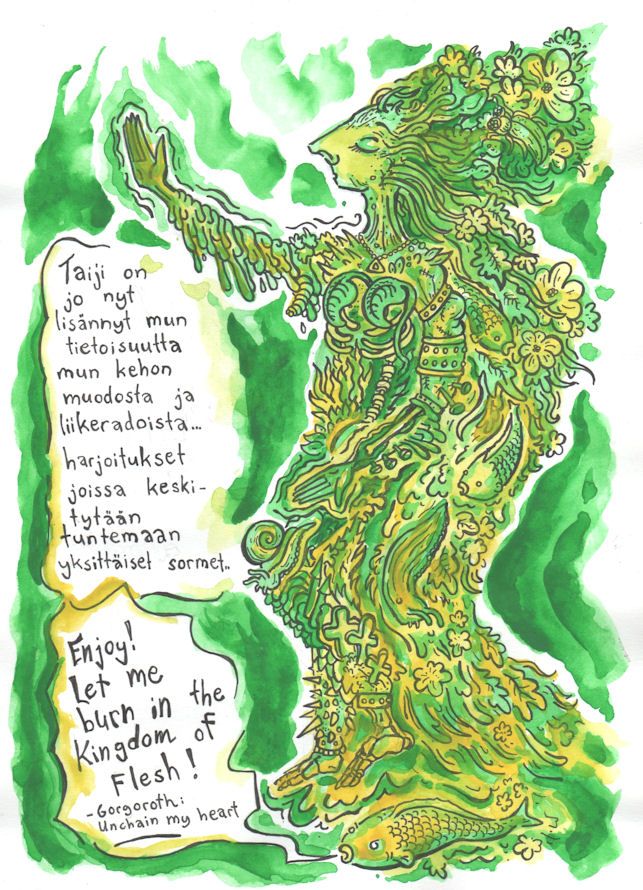 Taiji on
jo nyt
lisännyt mun
tietoisuutta
mun kehon
muodosta ja
liikeradoista...
harjoitukset
joissa keski-
tytään
tuntemaan
yksittäiset sormet..
Enjoy!
Let me
burn in the
Kingdom of
Flesh!
-Gorgoroth:
Unchain my heart